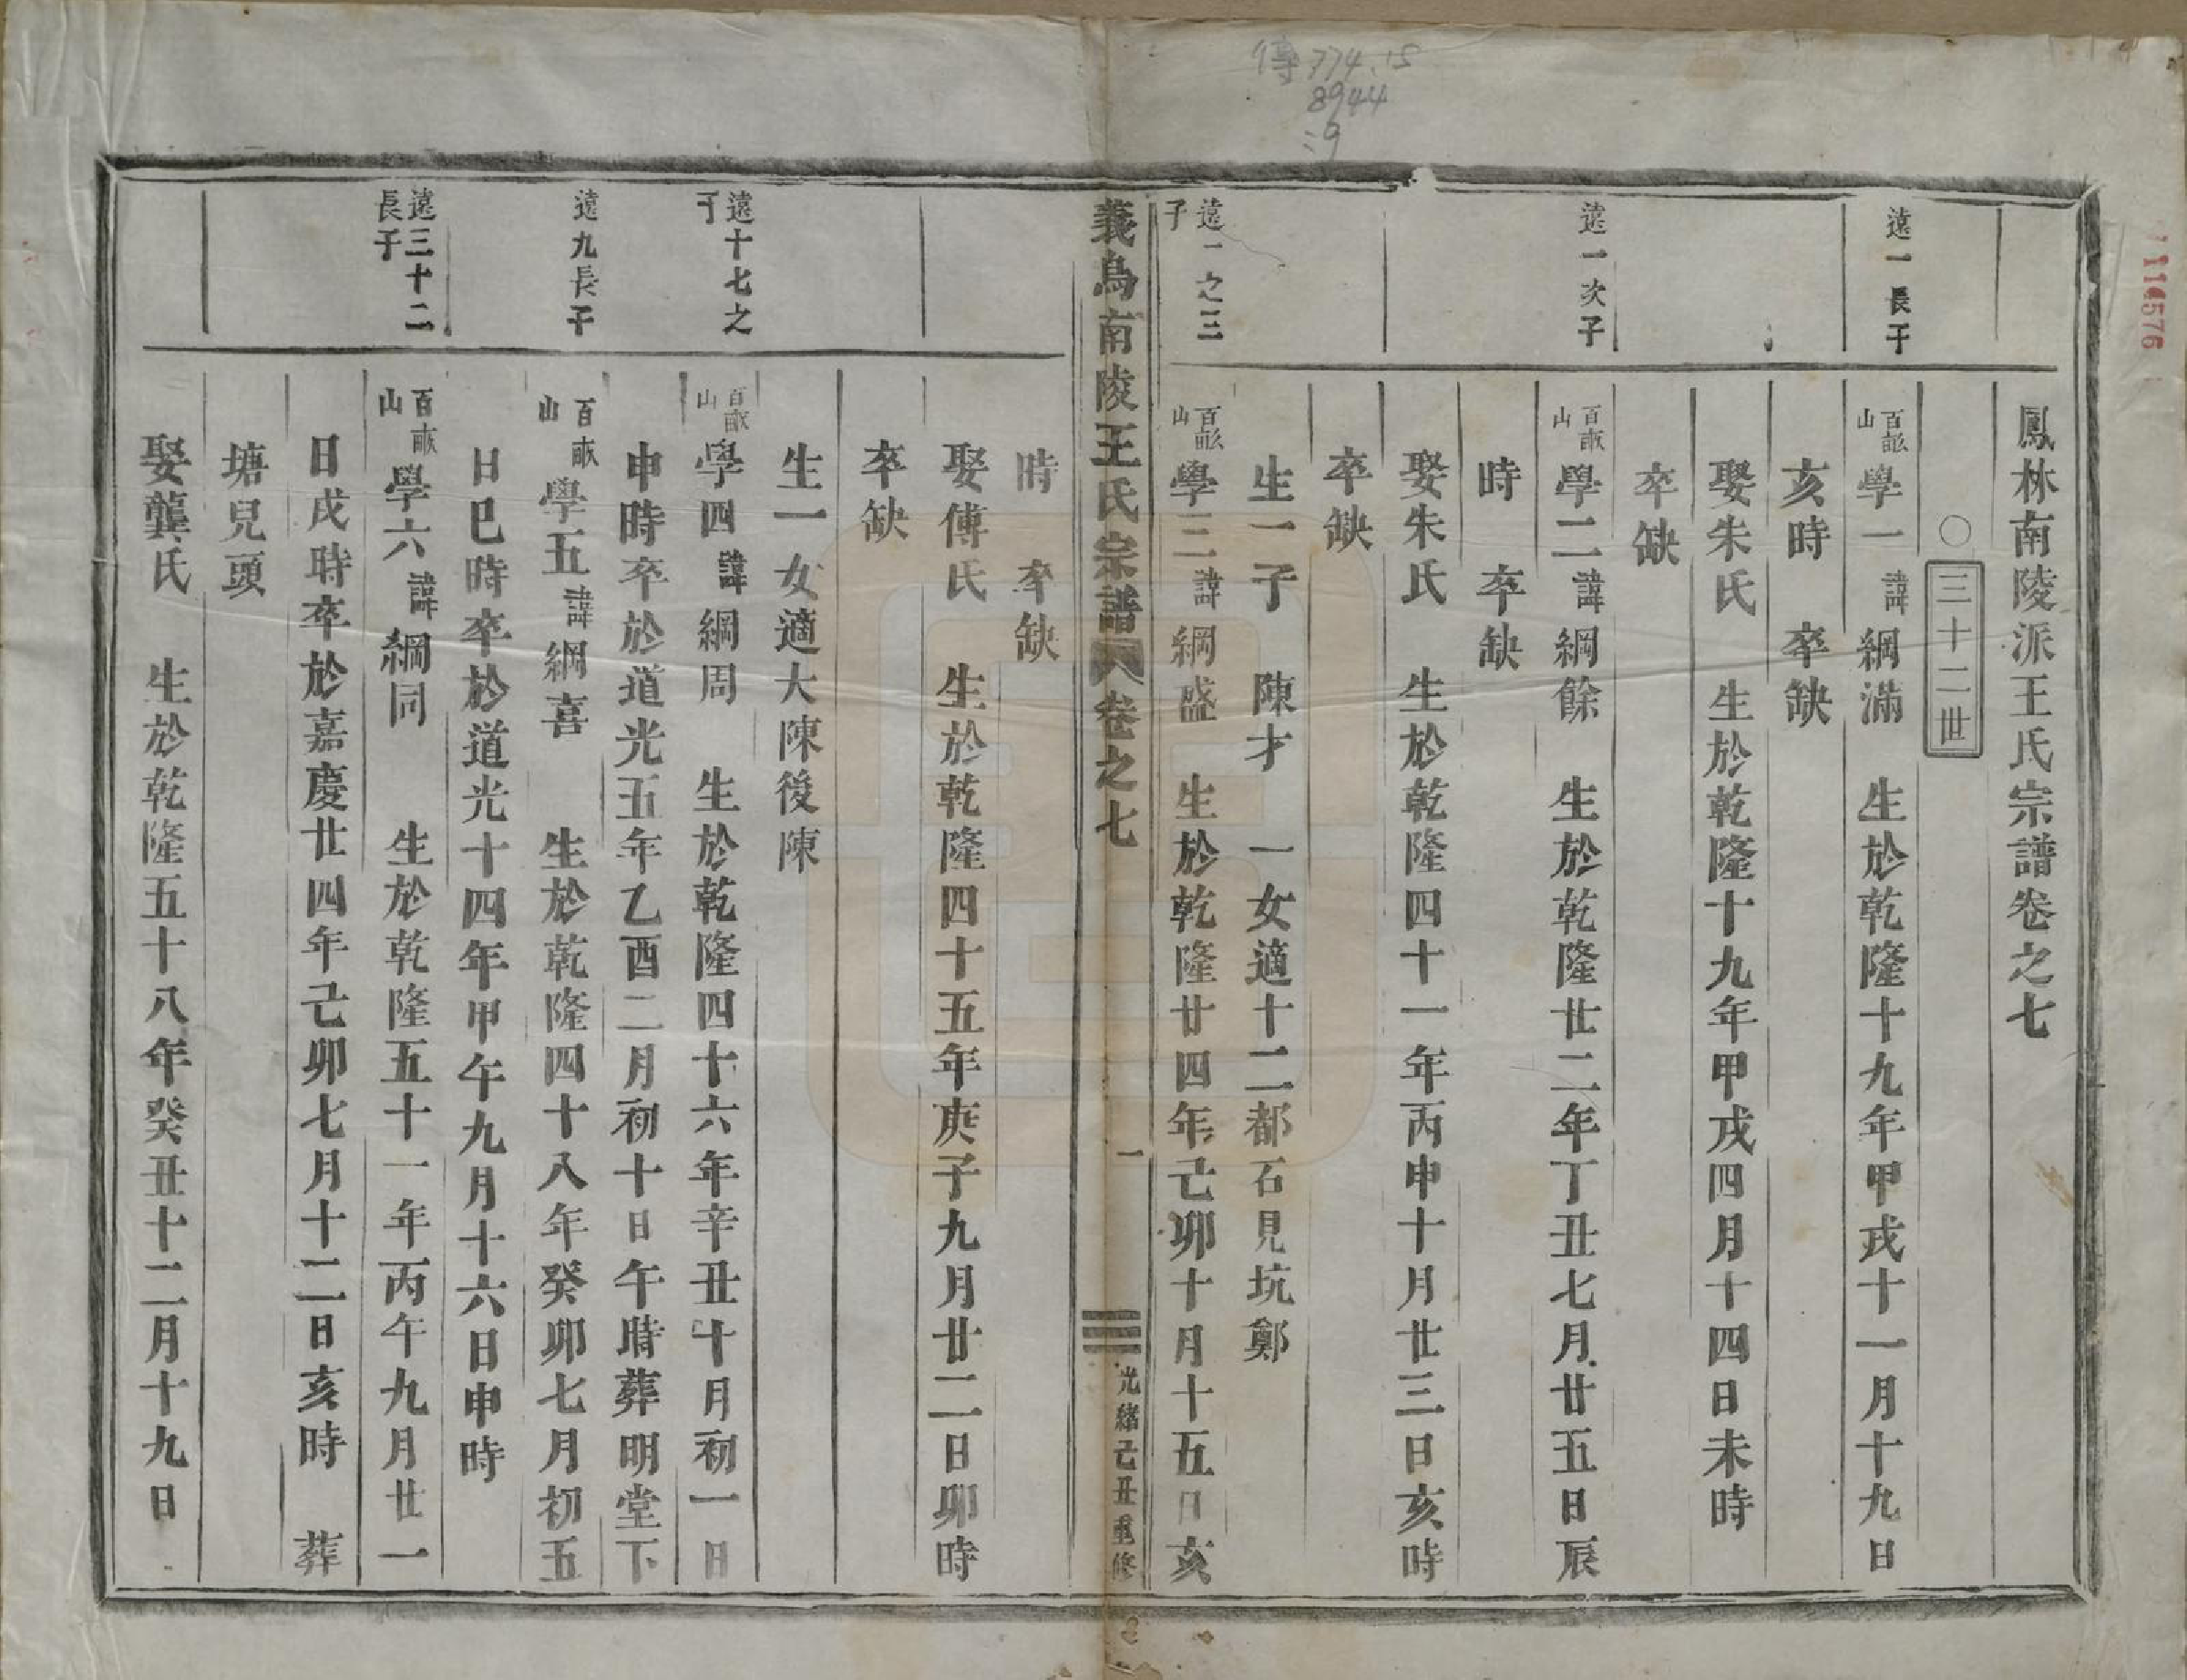 傳 774.15
8944
:9
114576
鳳林南陵派王氏宗譜卷之七
○三十二世
遠一長子
百畝山學一諱綱滿 生於乾隆十九年甲戌十一月十九日
亥時 卒缺
娶朱氏 生於乾隆十九年甲戌四月十四日未時
卒缺
遠一次子
百畝山學二諱綱餘 生於乾隆廿二年丁丑七月廿五日辰
時 卒缺
娶朱氏 生於乾隆四十一年丙申十月廿三日亥時
卒缺
生一子 陳才 一女適十二都石見坑鄭
遠一之三子
百畝山學三諱綱盛 生於乾隆廿四年己卯十月十五日亥
義烏南陵王氏宗譜 卷之七 一 光緒己丑重修
時 卒缺
娶傅氏 生於乾隆四十五年庚子九月廿二日卯時
卒缺
生一女適大陳後陳
遠十七之子
百畝山學四諱綱周 生於乾隆四十六年辛丑十月初一日
申時卒於道光五年乙酉二月初十日午時葬明堂下
遠九長子
百畝山學五諱綱喜 生於乾隆四十八年癸卯七月初五
日巳時卒於道光十四年甲午九月十六日申時
遠三十二長子
百畝山學六諱綱同 生於乾隆五十一年丙午九月廿一
日戌時卒於嘉慶廿四年己卯七月十二日亥時 葬
塘兒頭
娶龔氏 生於乾隆五十八年癸丑十二月十九日